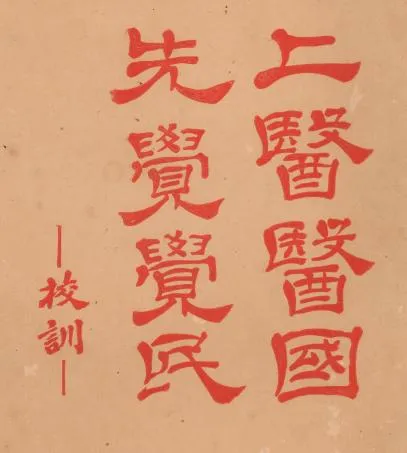 上醫醫國
先覺覺民
—校訓—